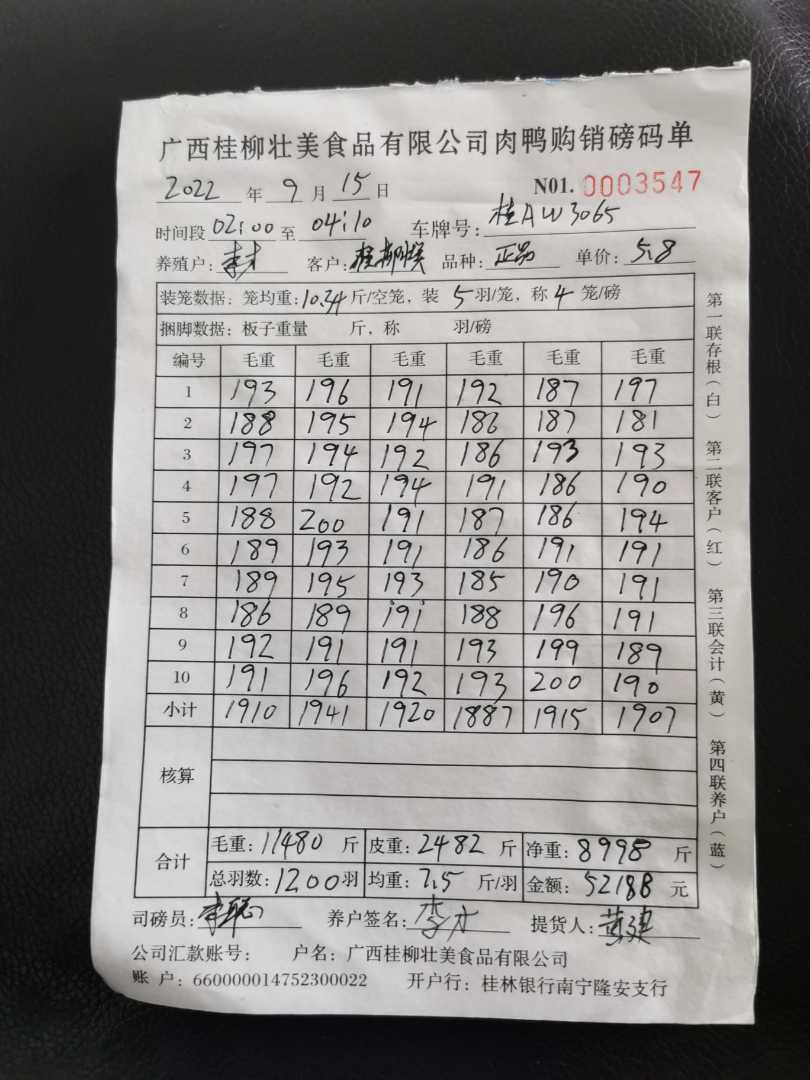 广西桂柳壮美食品有限公司肉鸭购销磅码单
2022 年 9 月 15 日 N01. 0003547
时间段 02:00 至 04:10 车牌号: 桂AW3065
养殖户: 李才 客户: 桂柳 品种: 正品 单价: 5.8
装笼数据: 笼均重: 10.34 斤/空笼, 装 5 羽/笼, 称 4 笼/磅
捆脚数据: 板子重量 斤, 称 羽/磅
编号 毛重 毛重 毛重 毛重 毛重 毛重
1 193 196 191 192 187 197
2 188 195 194 186 187 181
3 197 194 192 186 193 193
4 197 192 194 191 186 190
5 188 200 191 187 186 194
6 189 193 191 186 191 191
7 189 195 193 185 190 191
8 186 189 191 188 196 191
9 192 191 191 193 199 189
10 191 196 192 193 200 190
小计 1910 1941 1920 1887 1915 1907
核算
合计 毛重: 11480 斤 皮重: 2482 斤 净重: 8998 斤
总羽数: 1200 羽 均重: 7.5 斤/羽 金额: 52188 元
司磅员: 李聪 养户签名: 李才 提货人: 黄建
公司汇款账号: 户名: 广西桂柳壮美食品有限公司
账 户: 660000014752300022 开户行: 桂林银行南宁隆安支行
第一联存根(白) 第二联客户(红) 第三联会计(黄) 第四联养户(蓝)